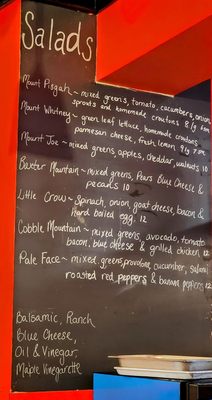 Salads
Mount Pisgah ~ mixed greens, tomato, cucumbers, onion,
sprouts and homemade croutons 8/g 6sm
Mount Whitney ~ green leaf lettuce, homemade croutons
parmesan cheese, fresh lemon 9/g 7sm
Mount Joe ~ mixed greens, apples, cheddar, walnuts 10
Baxter Mountain ~ mixed greens, Pears Blue Cheese &
pecans 10
Little Crow ~ Spinach, onion, goat cheese, bacon &
hard boiled egg. 12
Cobble Mountain ~ mixed greens, avocado, tomato
bacon, blue cheese & grilled chicken 12
Pale Face ~ mixed, greens, provolone, cucumber, salami,
roasted red peppers & banana peppers 12
Balsamic, Ranch
Blue Cheese,
Oil & Vinegar,
Maple Vinegarette